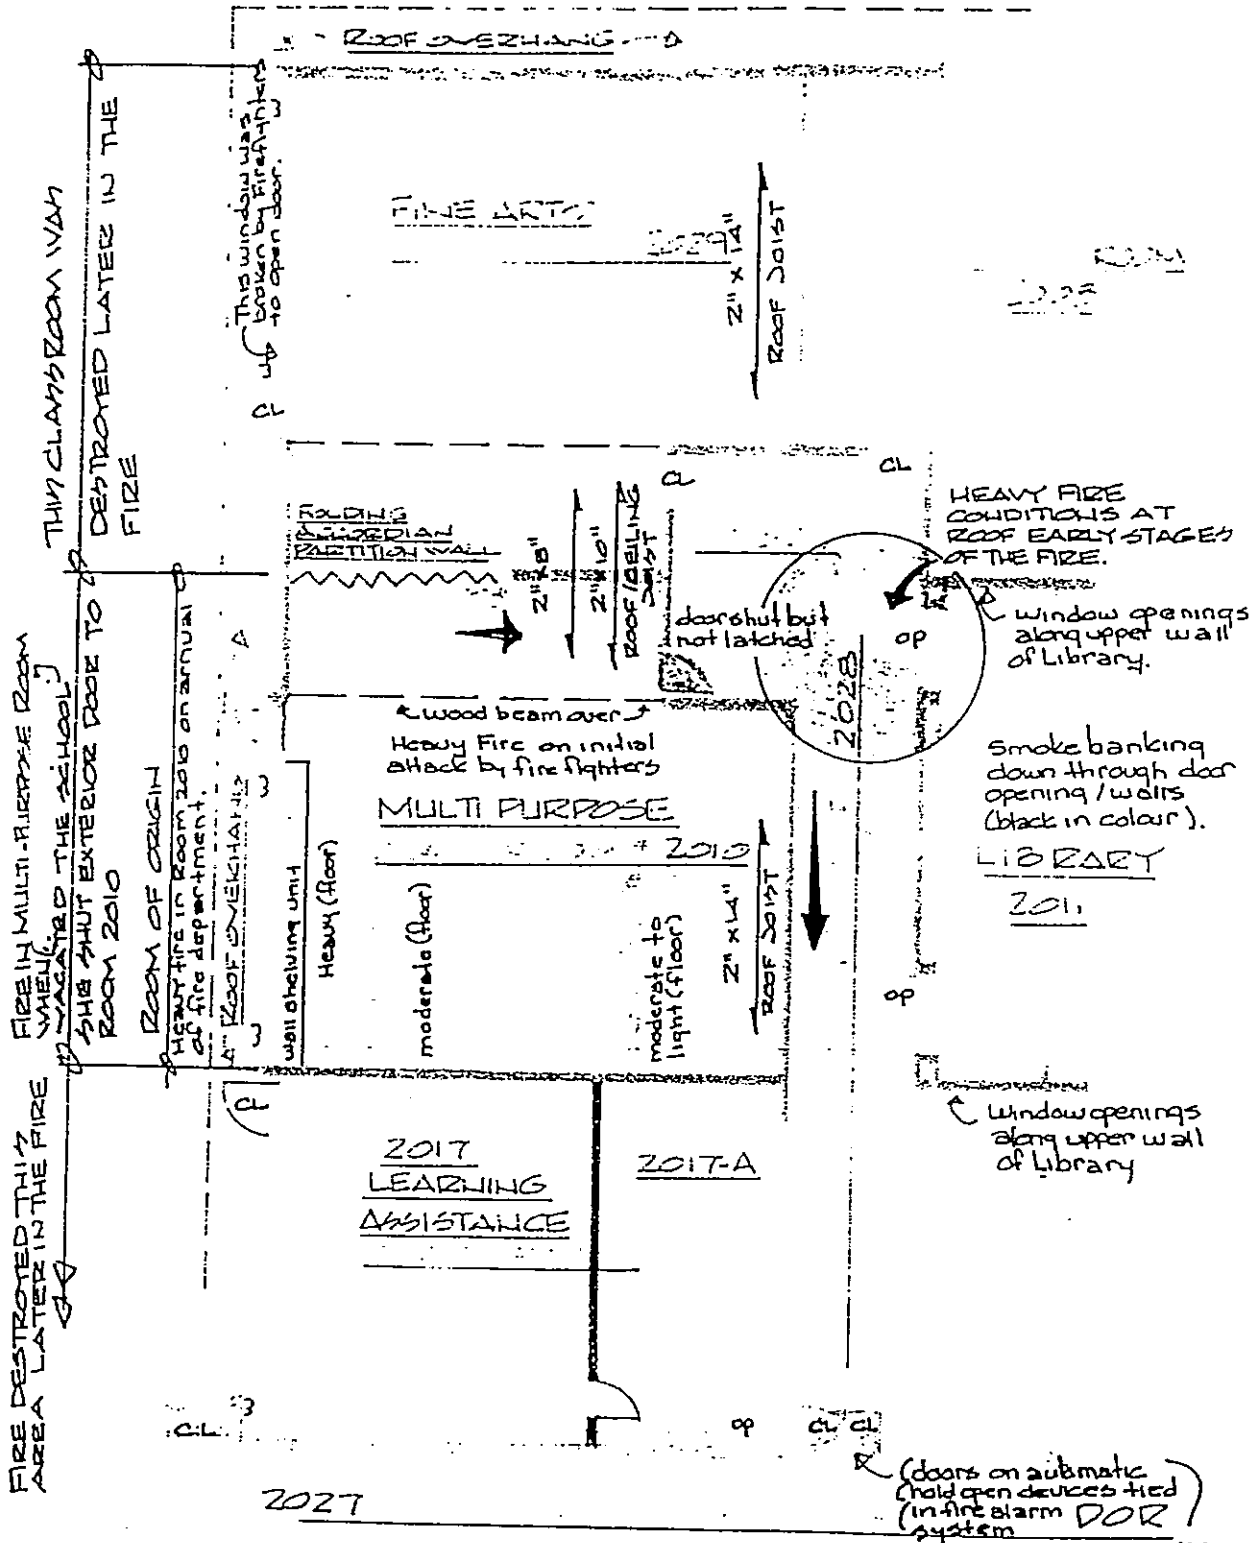 ROOF OVERHANG
THIS CLASSROOM WAS
DESTROYED LATER IN THE
FIRE
This window was
broken by Firefighters
to open door.
W
CL
FINE ARTS
2029
2" x 14"
ROOF JOIST
ROOM
FOLDING
ACCORDIAN
PARTITION WALL
2" x 8"
2" x 10"
ROOF/CEILING
JOIST
CL
CL
HEAVY FIRE
CONDITIONS AT
ROOF EARLY STAGES
OF THE FIRE.
door shut but
not latched
OP
2028
window openings
along upper wall
of Library.
FIRE IN MULTI-PURPOSE ROOM
WHEN
VACATED THE SCHOOL
SHE SHUT EXTERIOR DOOR TO
ROOM 2010
ROOM OF ORIGIN
Heavy fire in Room 2010 on annual
of fire department.
ROOF OVERHANG
wood beam over
Heavy Fire on initial
attack by fire fighters
MULTI PURPOSE
2010
wall shelving unit
Heavy (floor)
moderate (floor)
moderate to
light (floor)
2" x 14"
ROOF JOIST
smoke banking
down through door
opening/walls
(black in colour).
LIBRARY
2011
OP
window openings
along upper wall
of Library
CL
2017
LEARNING
ASSISTANCE
2017-A
FIRE DESTROYED THIS
AREA LATER IN THE FIRE
CL
OP
CL CL
(doors on automatic
(hold open devices tied
(in fire alarm DOR
system
2027